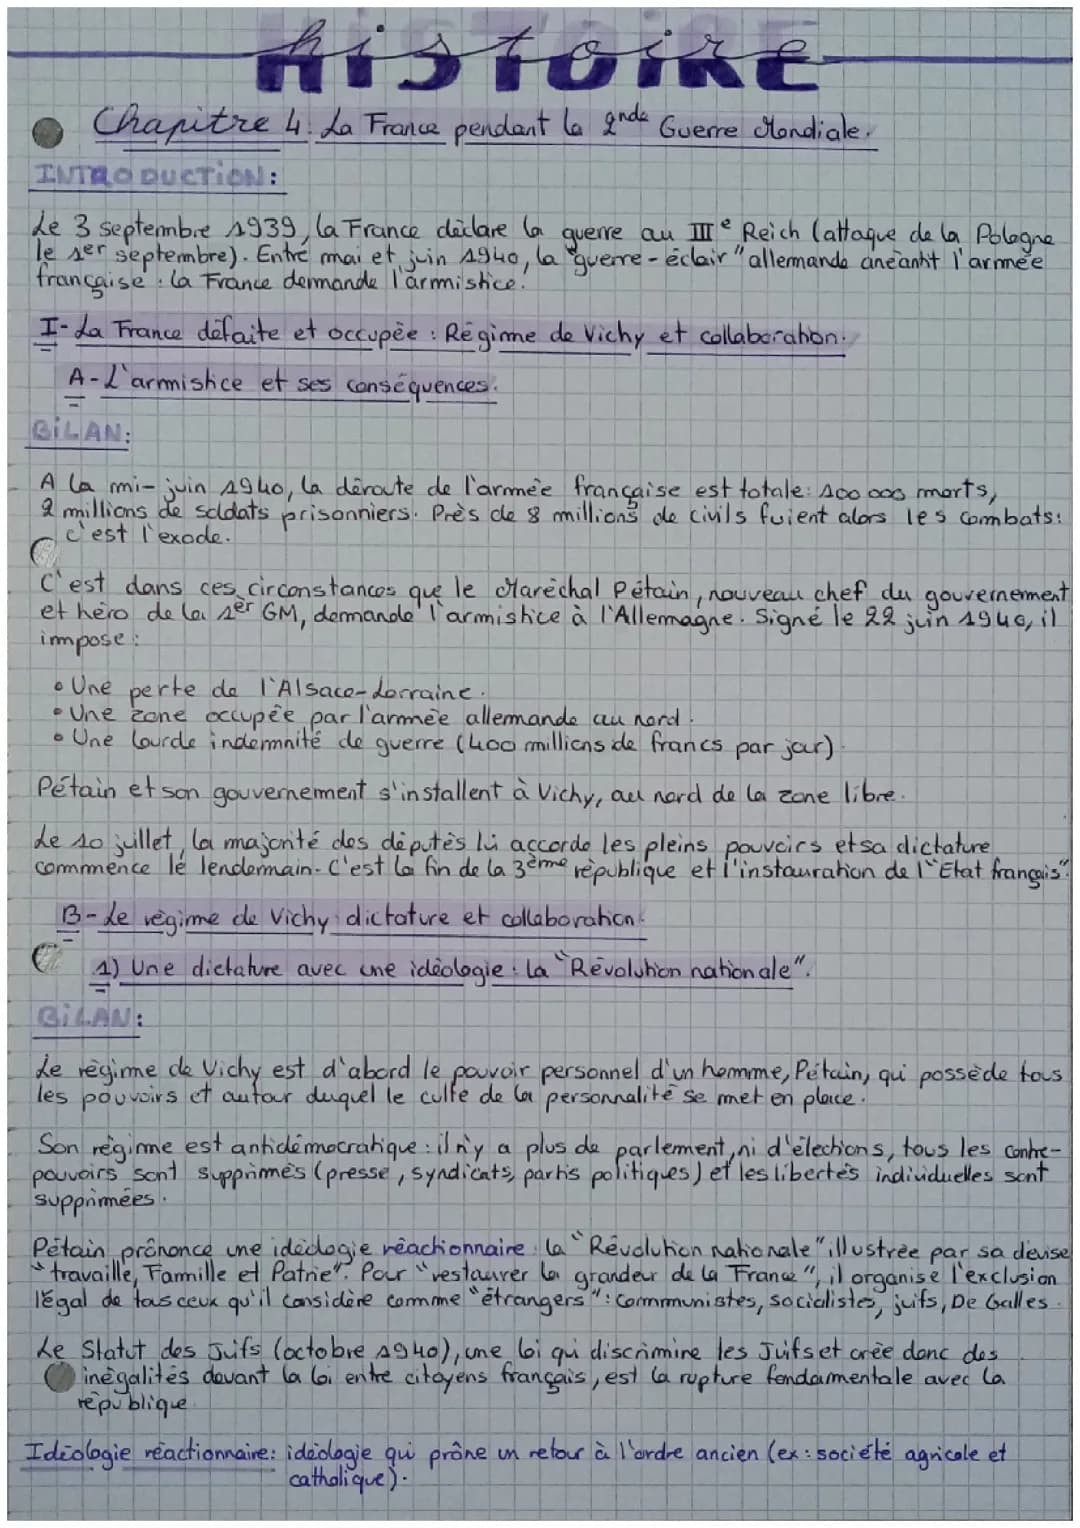 histoire
Chapitre 4: La France pendant la 2nde Guerre Mondiale.
INTRODUCTION:
Le 3 septembre 1939, la France déclare la guerre au IIIe Reich (attaque de la Pologne
le 1er septembre). Entre mai et juin 1940, la "guerre-éclair" allemande anéantit l'armée
française : la France demande l'armistice.
I- La France défaite et occupée : Régime de Vichy et collaboration.
A- L'armistice et ses conséquences.
BILAN:
A la mi-juin 1940, la déroute de l'armée française est totale: 100 000 morts,
2 millions de soldats prisonniers. Près de 8 millions de civils fuient alors les combats:
c'est l'exode.
C'est dans ces circonstances que le Maréchal Pétain, nouveau chef du gouvernement
et héro de la 1èr GM, demande l'armistice à l'Allemagne. Signé le 22 juin 1940, il
impose :
• Une perte de l'Alsace-Lorraine.
• Une zone occupée par l'armée allemande au nord.
• Une lourde indemnité de guerre (400 millions de francs par jour).
Pétain et son gouvernement s'installent à Vichy, au nord de la zone libre.
Le 10 juillet, la majorité des députés lui accorde les pleins pouvoirs et sa dictature
commence le lendemain. C'est la fin de la 3ème république et l'instauration de l'"Etat français".
B- Le régime de Vichy : dictature et collaboration.
1) Une dictature avec une idéologie : la "Révolution nationale".
BILAN:
Le régime de Vichy est d'abord le pouvoir personnel d'un homme, Pétain, qui possède tous
les pouvoirs et autour duquel le culte de la personnalité se met en place.
Son régime est antidémocratique : il n'y a plus de parlement, ni d'élections, tous les contre-
pouvoirs sont supprimés (presse, syndicats, partis politiques) et les libertés individuelles sont
supprimées.
Pétain prônonce une idéologie réactionnaire : la "Révolution nationale" illustrée par sa devise
"travaille, Famille et Patrie". Pour "restaurer la grandeur de la France", il organise l'exclusion
légal de tous ceux qu'il considère comme "étrangers" : communistes, socialistes, juifs, De Galles.
Le Statut des Juifs (octobre 1940), une loi qui discrimine les Juifs et crée donc des
inégalités devant la loi entre citoyens français, est la rupture fondamentale avec la
république.
Idéologie réactionnaire: idéologie qui prône un retour à l'ordre ancien (ex : société agricole et
catholique).